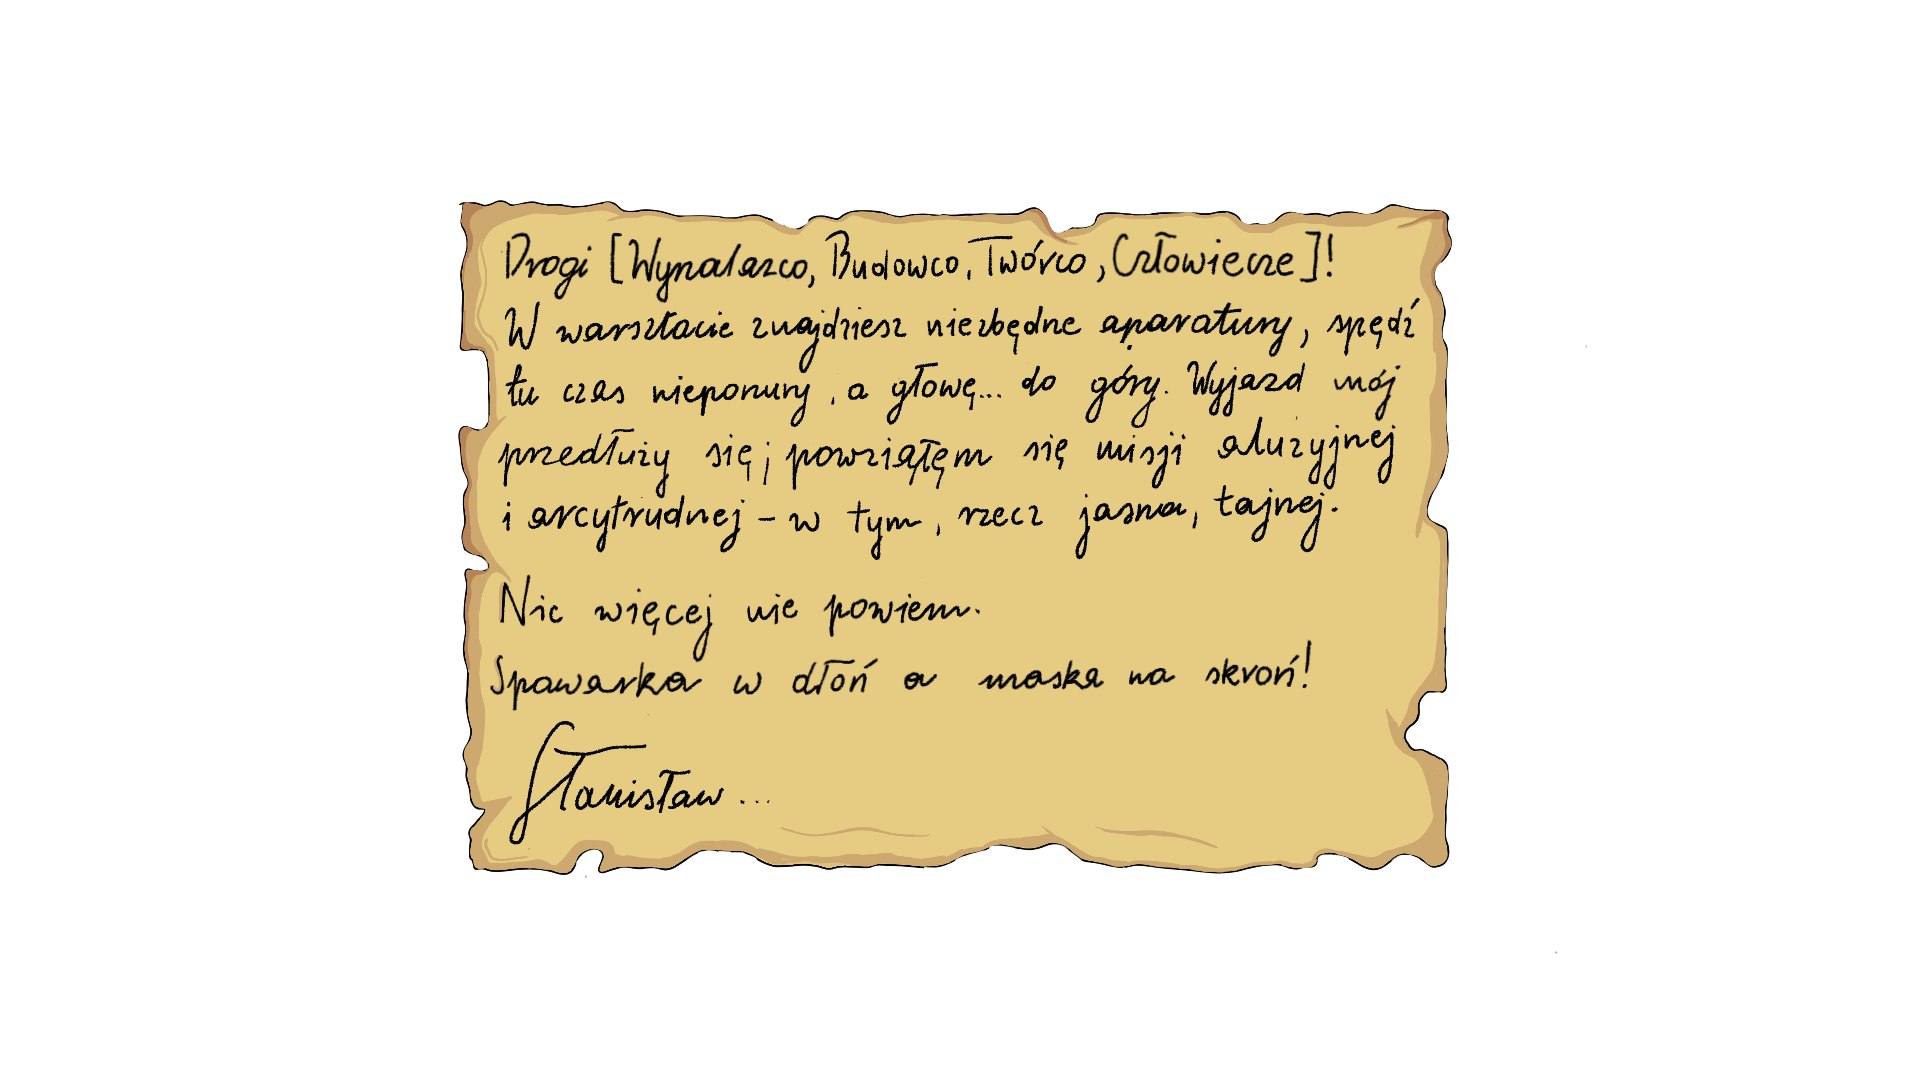 Drogi [Wynalazco, Budowco, Twórco, Człowiecze]!
W warsztacie znajdziesz niezbędne aparatury, spędź
tu czas nieponury, a głowę... do góry. Wyjazd mój
przedłuży się; powziąłęm się misji aluzyjnej
i arcytrudnej - w tym, rzecz jasna, tajnej.
Nic więcej nie powiem.
Spawarka w dłoń a maska na skroń!
Stanisław...